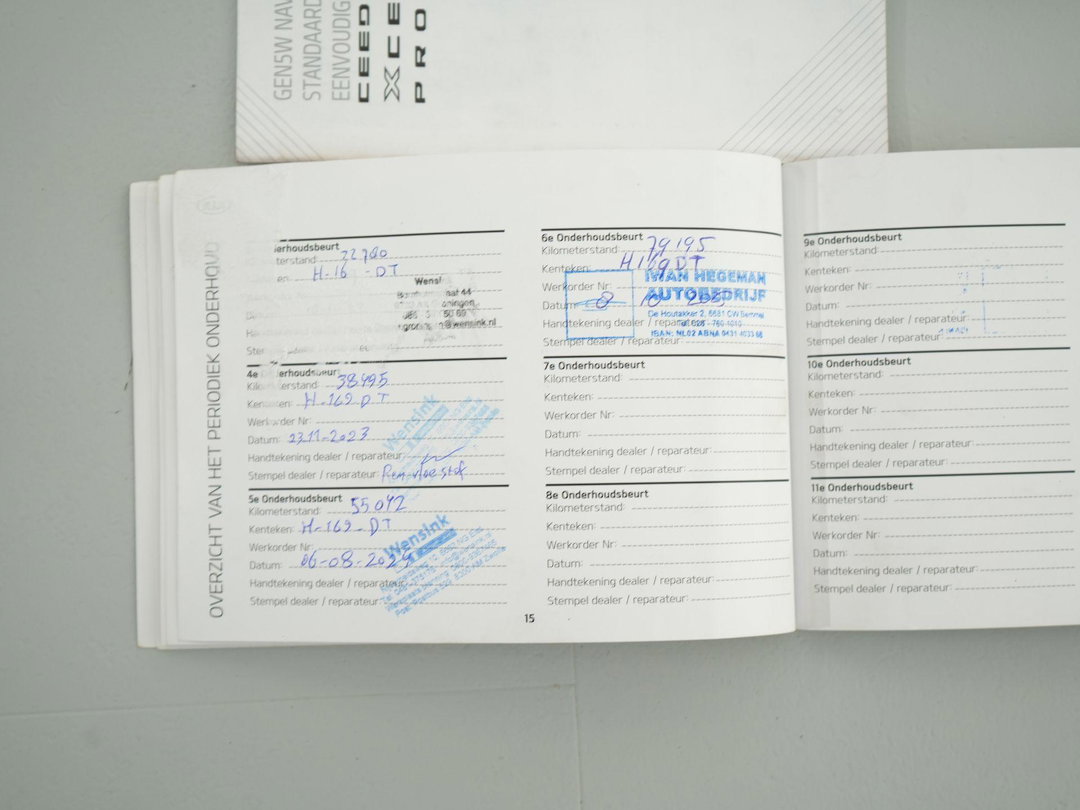 GEN5W NAV
STANDAARD
EENVOUDIG
CEED
XCE
PRO
OVERZICHT VAN HET PERIODIEK ONDERHOUD
erhoudsbeurt
terstand:
H-16 -DT
Wens
aat 44
ningen
@wensink.nl
4e erhoudsbeurt
Kilo erstand: 38495
Kenteken: H-169-DT
Werkorder Nr:
Datum: 23-11-2023
Wensink
Handtekening dealer / reparateur:
Stempel dealer / reparateur:
5e Onderhoudsbeurt
Kilometerstand: 55042
Kenteken: H-169-DT
Werkorder Nr:
Datum: 06-08-2024
Wensink
Handtekening dealer / reparateur:
Stempel dealer / reparateur:
6e Onderhoudsbeurt
Kilometerstand: 79195
Kenteken: H169DT
Werkorder Nr:
Datum: 8 10
IWAN HEGEMAN
AUTOBEDRIJF
De Houtakker 2, 6681 CW Bemmel
Handtekening dealer / reparateur:
Stempel dealer / reparateur:
7e Onderhoudsbeurt
Kilometerstand:
Kenteken:
Werkorder Nr:
Datum:
Handtekening dealer / reparateur:
Stempel dealer / reparateur:
8e Onderhoudsbeurt
Kilometerstand:
Kenteken:
Werkorder Nr:
Datum:
Handtekening dealer / reparateur:
Stempel dealer / reparateur:
15
9e Onderhoudsbeurt
Kilometerstand:
Kenteken:
Werkorder Nr:
Datum:
Handtekening dealer / reparateur:
Stempel dealer / reparateur:
10e Onderhoudsbeurt
Kilometerstand:
Kenteken:
Werkorder Nr:
Datum:
Handtekening dealer / reparateur:
Stempel dealer / reparateur:
11e Onderhoudsbeurt
Kilometerstand:
Kenteken:
Werkorder Nr:
Datum:
Handtekening dealer / reparateur:
Stempel dealer / reparateur: